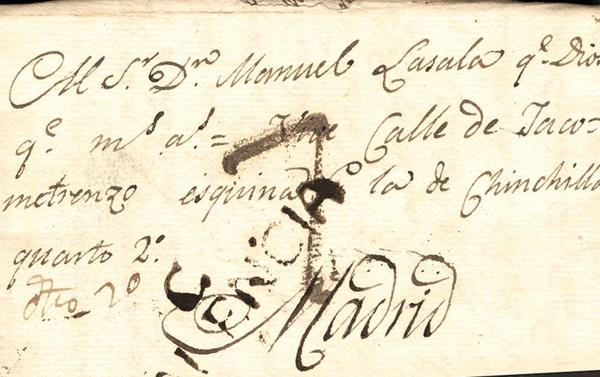 Al Sr. Dn. Manuel Lasala qe. Dios
qe. ms. as. = Vive Calle de Jaco=
metrenzo esquina la de Chinchilla
quarto 2º.
2º
Madrid